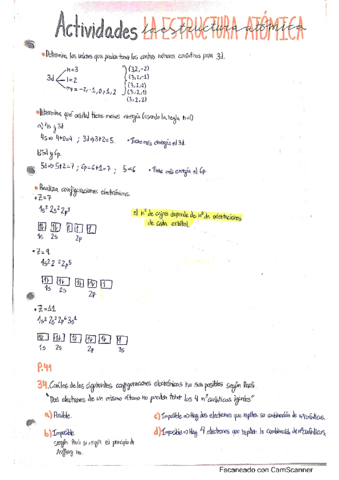 Actividades LA ESTRUCTURA ATÓMICA
Determina los valores que pueden tener los cuatro números cuánticos para 3d.
n=3
3d l=2
m=-2,-1,0,1,2
(3,2,-2)
(3,2,-1)
(3,2,0)
(3,2,1)
(3,2,2)
Determina qué orbital tienes menos energía (usando la regla n+l)
a) 4s y 3d
4s⇒4+0=4 ; 3d⇒3+2=5. Tiene más energía el 3d.
b) 5d y 6p.
5d⇒5+2=7; 6p⇒6+1=7;
Tiene más energía el 6p.
Realiza configuraciones electrónicas.
Z=7
1s² 2s² 2p³
el nº de cajas depende de nº de orientaciones
de cada orbital
1s 2s 2p
Z=9
1s² 2s² 2p⁵
1s 2s 2p
Z=11
1s² 2s² 2p⁶ 3s¹
1s 2s 2p 3s
P.41
34. Cuáles de las siguientes configuraciones electrónicas no son posibles según Pauli
"Dos electrones de un mismo átomo no pueden tener los 4 nº cuánticos iguales"
a) Posible.
c) Imposible⇒Hay dos electrones que repiten su combinación de nº cuánticos.
b) Imposible
d) Imposible⇒Hay 4 electrones que repiten la combinación de nº cuánticos.
el principio de
Escaneado con CamScanner